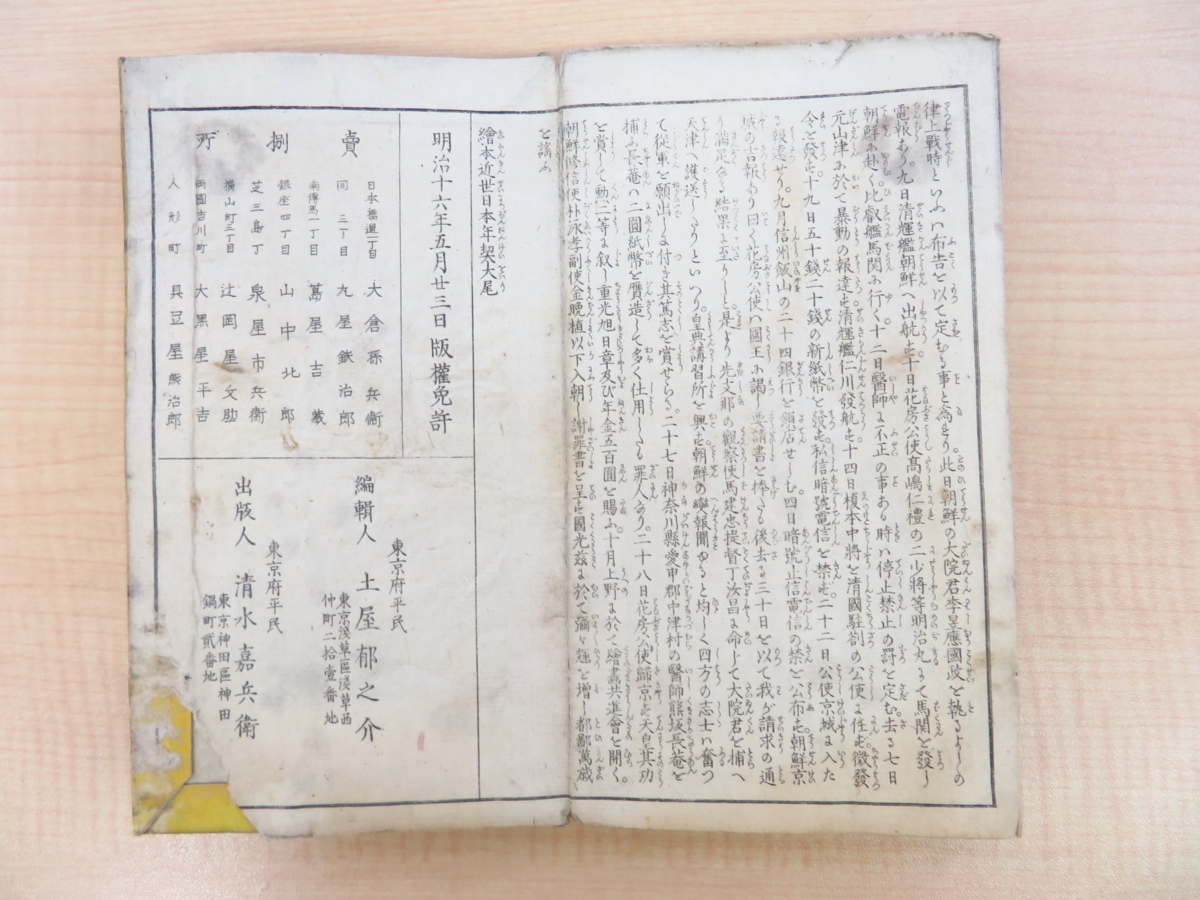 律上戦時といふハ布告を以て定むる事と為せり。此日朝鮮の大院君李昰應國政を執るよしの
電報あり。九日清輝艦朝鮮へ出航す十日花房公使高嶋仁禮の二少將等明治丸にて馬関を發し
朝鮮に赴く比叡艦馬関に行く十二日醫師に不正の事ある時ハ停止禁止の罰を定む。去る七日
元山津に於て暴動の報達す清輝艦仁川發航す十四日榎本中將を清國駐剳の公使に任す徴發
令を發す十九日五十錢二十錢の新紙幣を發す私信暗號電信を禁す二十二日公使京城に入た
る報達せり。九月信州飯山の二十四銀行を鎖店せしむ四日暗號止信電信の禁を公布す朝鮮京
城の吉報あり曰く花房公使ハ國王に謁し要請書を捧たる後去る三十日を以て我が請求の通
り満足なる結果に至りしと是より先支那の觀察使馬建忠提督丁汝昌に命じて大院君を捕へ
天津へ護送したりといつり。皇典講習所を興す朝鮮の變報聞ゆると均しく四方の志士ハ奮つ
て從軍を願出しに付き其篤志を賞せらる。二十七日神奈川縣愛甲郡中津村の醫師熊坂長菴を
捕ふ長菴ハ二圓紙幣を贋造して多く仕用したる罪人なり。二十八日花房公使歸京す天皇其功
を賞して勳二等に叙し重光旭日章及び年金五百圓を賜ふ十月上野に於て繪畫共進會を開く。
朝鮮修信使朴泳孝副使金晩植以下入朝し謝罪書を呈す國光茲に於て彌々輝を増し都鄙萬歳
を謠ふ
繪本近世日本年契大尾
明治十六年五月廿三日版權免許
賣捌所
日本橋通一丁目 大倉孫兵衛
同 三丁目 丸屋鉄治郎
南傳馬一丁目 萬屋吉蔵
銀座四丁目 山中北郎
芝三島丁 泉屋市兵衛
横山町三丁目 辻岡屋文助
両國吉川町 大黒屋平吉
人形町 具足屋熊治郎
東京府平民
編輯人 土屋郁之介
東京淺草區淺草西
仲町二拾壹番地
東京府平民
出版人 清水嘉兵衛
東京神田區神田
鍋町貳番地